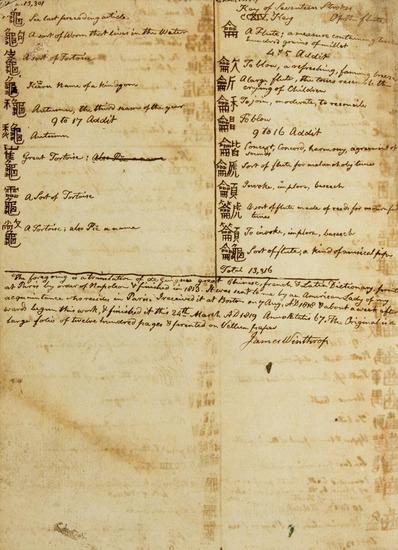 13,301
See last preceding article.
A sort of Worm that lives in the Water
A sort of Tortoise
Name of a kingdom
Autumn, the third Name of the year
9 to 17 Addit
Autumn
Great Tortoise; also
A Sort of Tortoise
A Tortoise; also Pie a name
Key of Seventeen Strokes
CCXIV. Key Of the flute
龠 A Flute; a measure containing twelve
hundred grains of millet
4 & 5 Addit
To blow, a refreshing, fanning breeze
A large flute, the tones resemble the
crying of Children
龢 To join, moderate, to reconcile
To blow
9 to 16 Addit
龤 Concert, Concord, harmony, agreement of
sounds
Sort of flute for melancholy tunes
Invoke, implore, beseech
A sort of flute made of reeds for
tunes
To invoke, implore, beseech
Sort of flute, a kind of musical pipe.
Total 13,316
The foregoing is a translation of de Guignes great Chinese, french & Latin Dictionary, printed
at Paris by order of Napoleon & finished in 1813. It was sent to me by an American Lady of my
acquaintance who resides in Paris. I received it at Boston on 7 Aug. AD 1818 & about a week after
wards begun this work, & finished it this 24th March AD 1819 Anno Ætatis 67. The Original is a
large folio of twelve hundred pages & printed on Vellum paper
James Winthrop